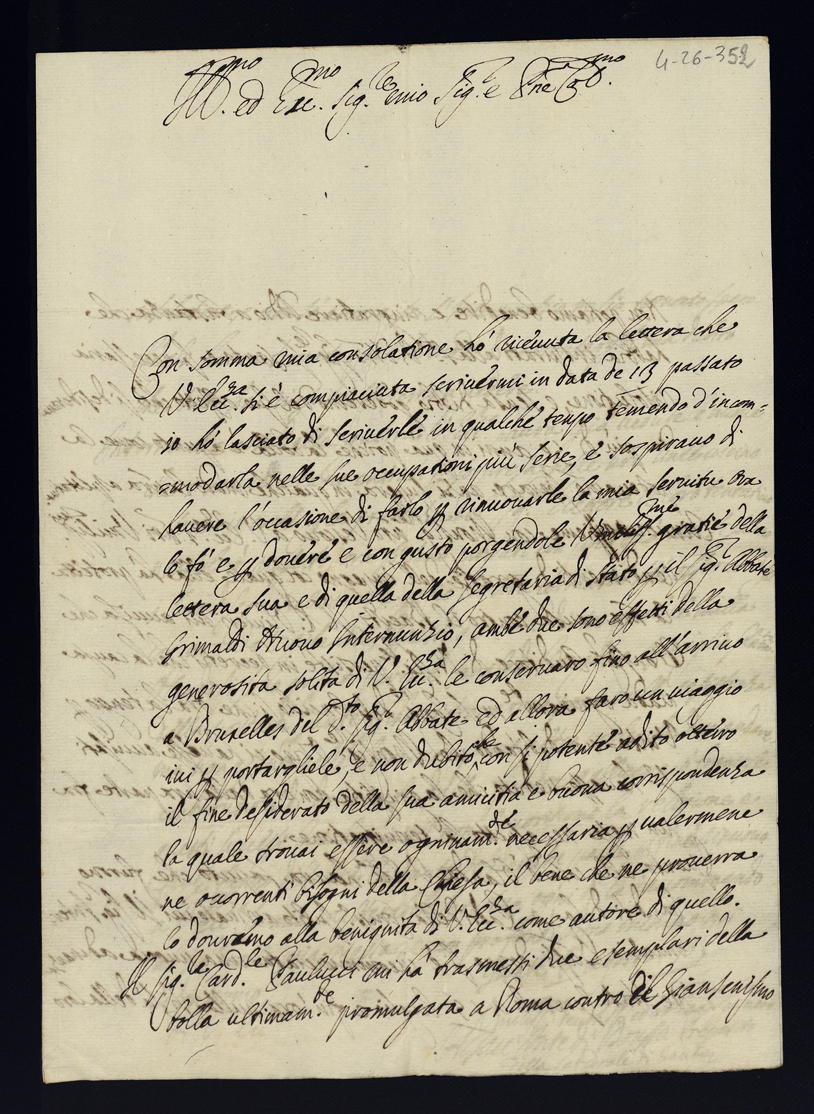 4-26-352
Ill.mo ed Ecc.mo Sig.re mio Sig.r e Pne Col.mo
Con somma mia consolatione hò riceuuta la lettera che
V. Ecc.za si è compiaciuta scriuermi in data de 13 passato
io hò lasciato di scriuerle in qualche tempo temendo d'incom=
=modarla nelle sue occupationi più serie, e sospirauo di
hauere l'occasione di farlo p rinuouarle la mia seruitu ora
lo fò e p douere e con gusto porgendole grazie della
lettera sua e di quella della Segretaria di Stato p il Sig.r Abbate
Grimaldi Nuouo Internunzio, ambe due sono effetti della
generosita solita di V. Ecc.za le conseruaro fino all'arriuo
a Bruxelles del d.to Sig.r Abbate ed allora faro un uiaggio
iui p portargliele, e non dubito che con si potente adito otterro
il fine desiderato della sua amicitia e buona corrispondenza
la quale trouai essere ogninam.te necessaria p ualermene
ne ocorrenti bisogni della Chiesa, il bene che ne prouerra
lo douremo alla benignita di V. Ecc.za come autore di quello.
Il Sig.re Card.le Paulucci mi hà trasmessi due esemplari della
bolla ultimam.te promulgata a Roma contro il Giansenismo